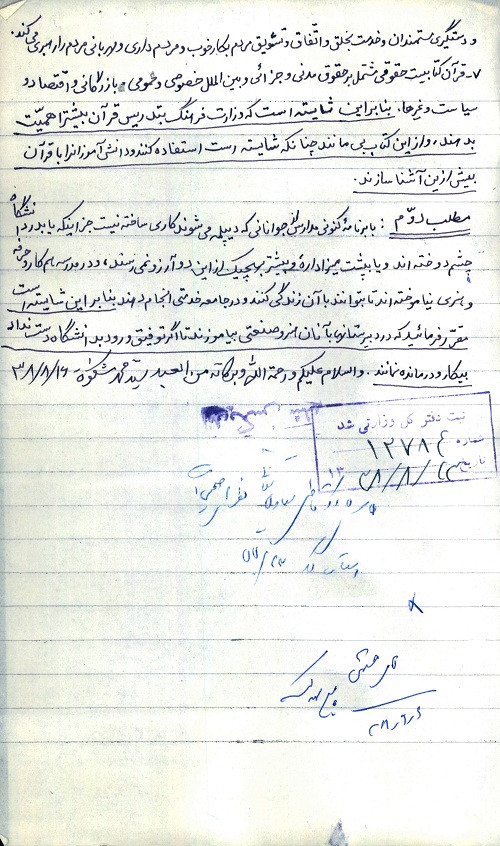 و دستگیری مستمندان و خدمت بخلق و اتّفاق و تشویق مردم بکار خوب و مردم داری و مهربانی مردم را رهبری می‌کند.
۷- قرآن کتابیست حقوقی مشتمل بر حقوق مدنی و جزائی و بین الملل خصوصی و عمومی و بازرگانی و اقتصاد و
سیاست و غیرها. بنابراین شایسته است که وزارت فرهنگ بتدریس قرآن بیشتر اهمیّت
بدهند، و از این کتاب بی مانند چنانکه شایسته است استفاده کنند و دانش آموزان را با قرآن
بیش ازین آشنا سازند.
مطلب دوّم : با برنامهٔ کنونی مدارس جوانانی که دیپلمه می‌شوند کاری ساخته نیست جز اینکه یا بدر دانشگاه
چشم دوخته اند و یا پشت میز اداره و بیشتر بهیچیک از این دو آرزو نمی رسند، و در مدرسه هم کار و حرفه
و هنری نیاموخته اند تا بتوانند با آن زندگی کنند و در جامعه خدمتی انجام دهند بنابراین شایسته است
مقرّر فرمائید که در دبیرستانها بآنان هنر و صنعتی بیاموزند تا اگر توفیق ورود بدانشگاه دست نداد
بیکار و درمانده نمانند. والسلام علیکم و رحمة الله و برکاته من العبد سیّد محمد مشکوة ۳۸/۸/۱۶
ثبت دفتر کل وزارتی شد
شماره ۱۲۷۸۴
تاریخ ۱۳